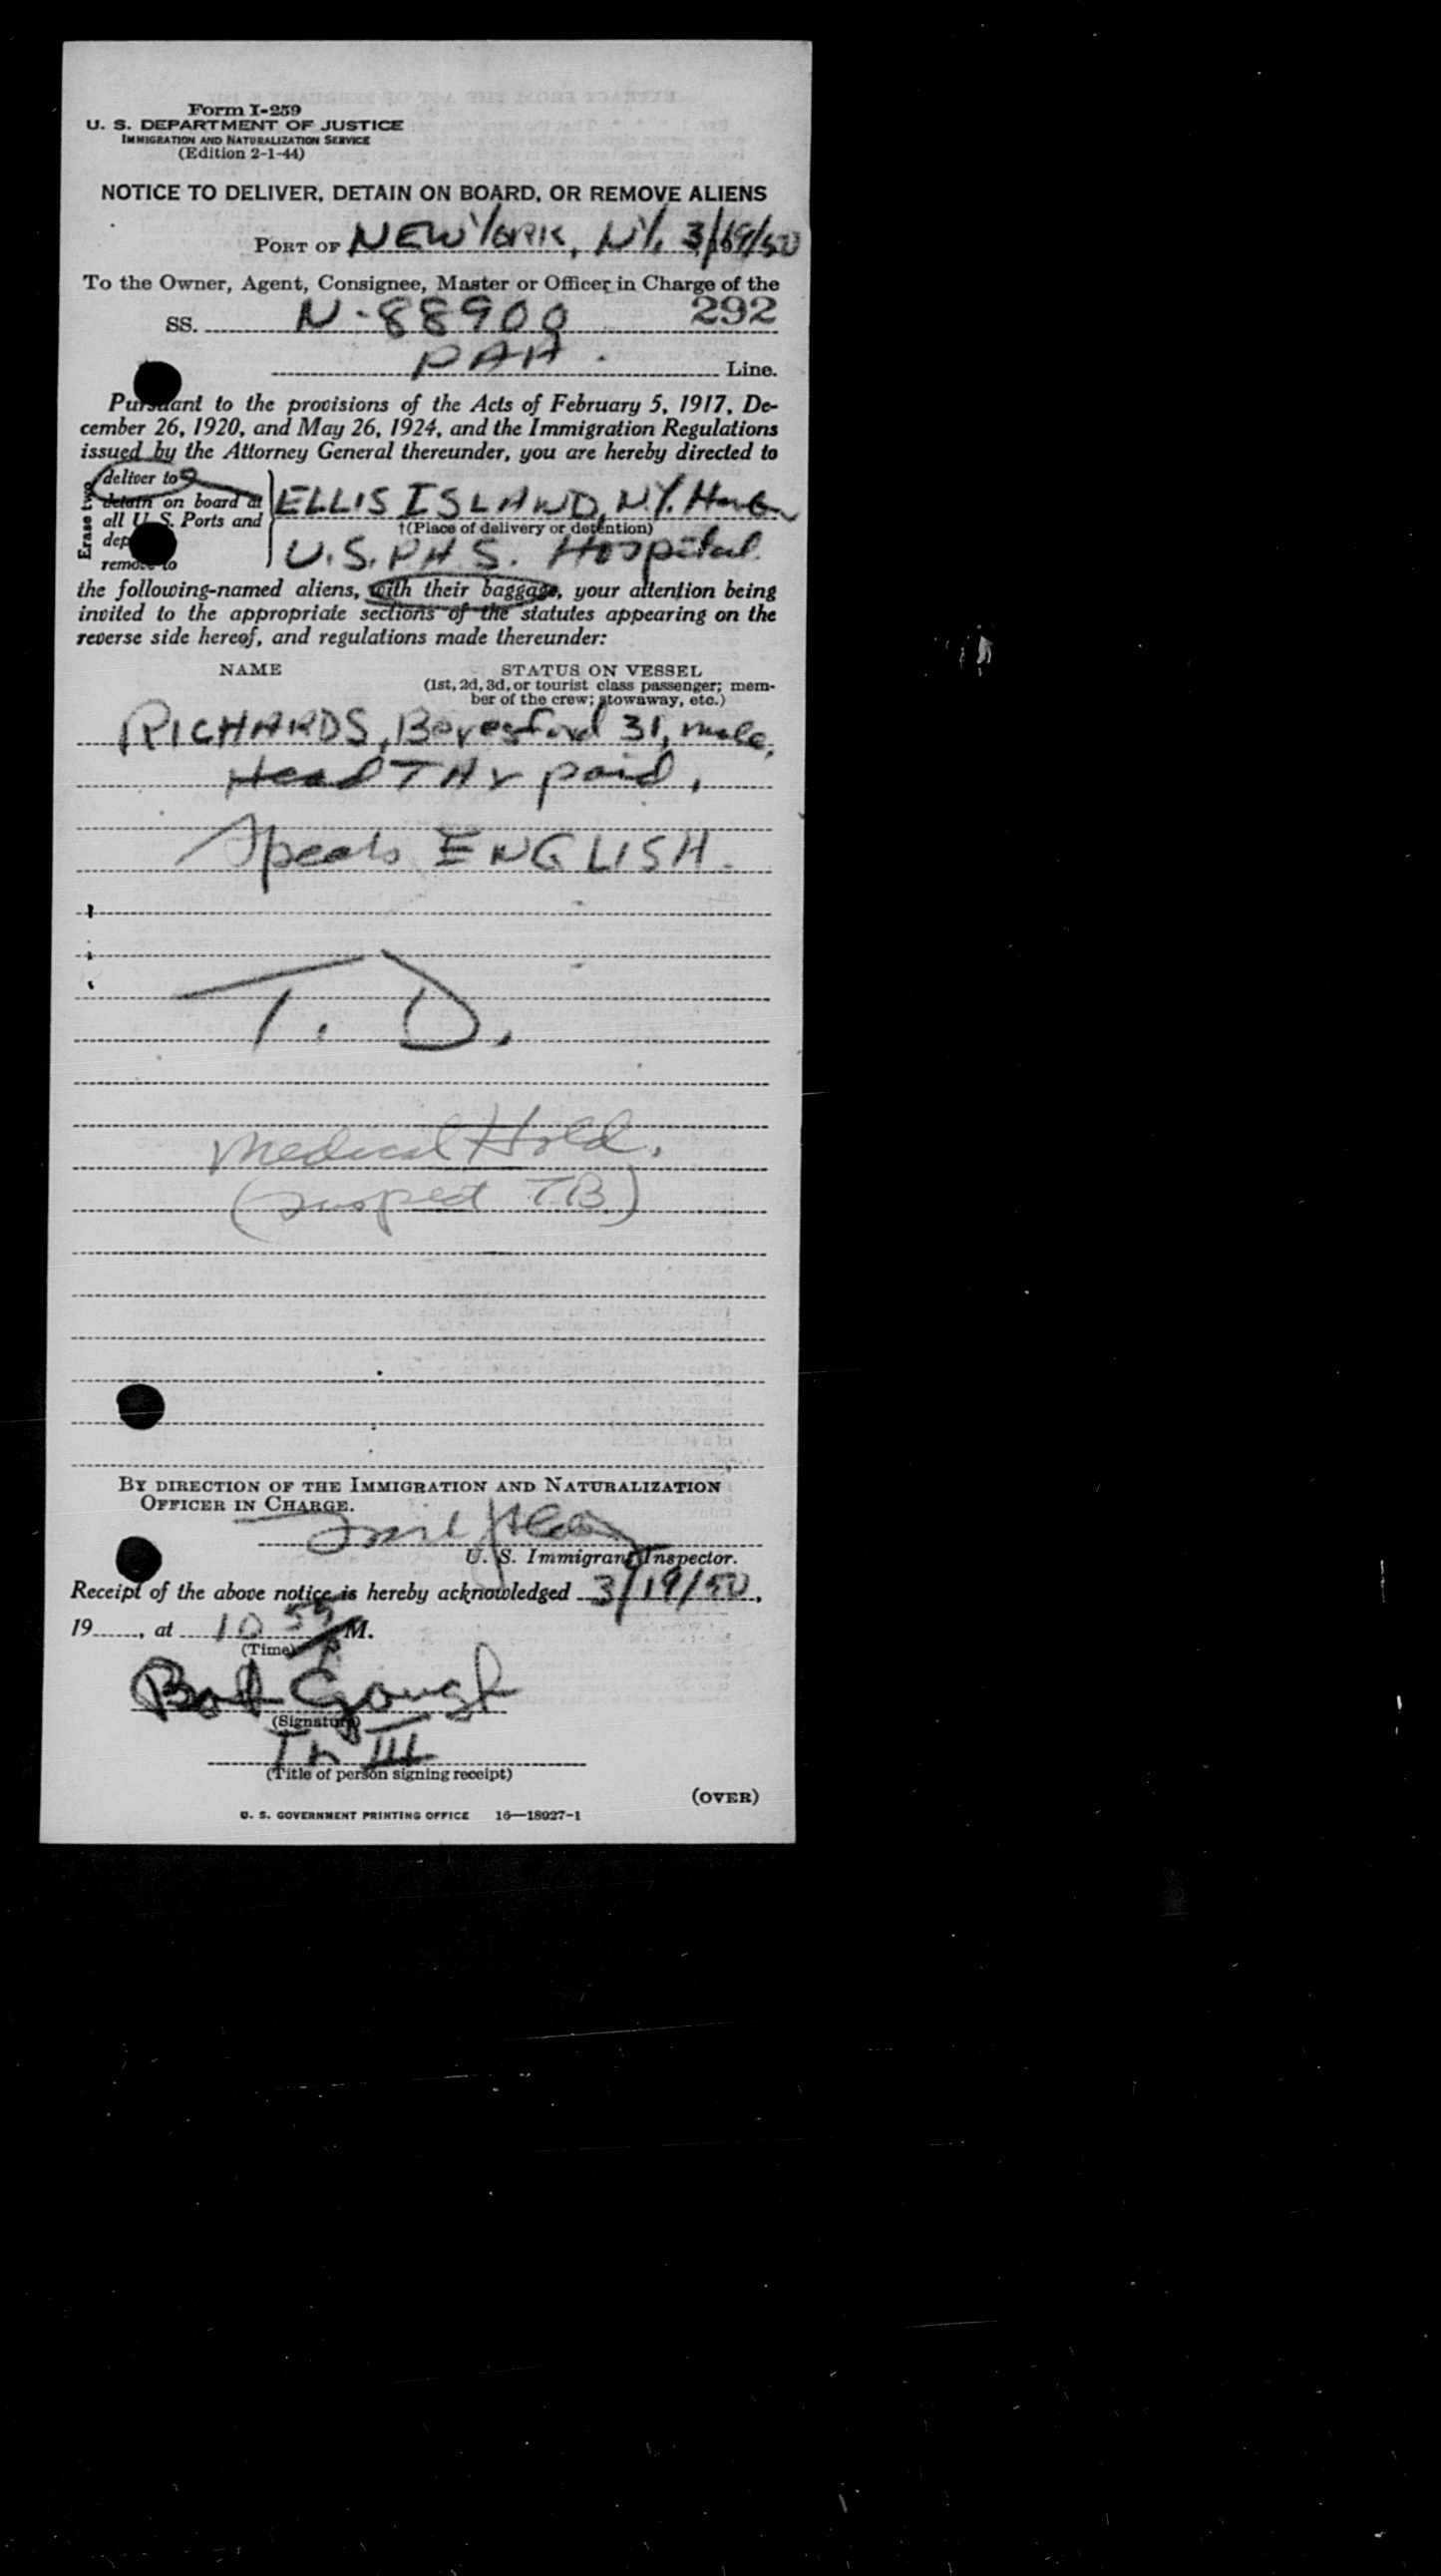 Form I-259
U. S. DEPARTMENT OF JUSTICE
IMMIGRATION AND NATURALIZATION SERVICE
(Edition 2-1-44)
NOTICE TO DELIVER, DETAIN ON BOARD, OR REMOVE ALIENS
PORT OF NEW YORK, N.Y. 3/19/50
To the Owner, Agent, Consignee, Master or Officer in Charge of the
292
SS. N-88900
PAA Line.
Pursuant to the provisions of the Acts of February 5, 1917, De-
cember 26, 1920, and May 26, 1924, and the Immigration Regulations
issued by the Attorney General thereunder, you are hereby directed to
Erase two
deliver to
detain on board at
all U. S. Ports and
dep
remove to
ELLIS ISLAND, N.Y. Harbor
†(Place of delivery or detention)
U.S.P.H.S. Hospital
the following-named aliens, with their baggage, your attention being
invited to the appropriate sections of the statutes appearing on the
reverse side hereof, and regulations made thereunder:
NAME STATUS ON VESSEL
(1st, 2d, 3d, or tourist class passenger; mem-
ber of the crew; stowaway, etc.)
RICHARDS, Beresford 31, male,
Head TAX paid,
Speaks ENGLISH.
T. D.
Medical Hold.
(suspect TB)
BY DIRECTION OF THE IMMIGRATION AND NATURALIZATION
OFFICER IN CHARGE.
U. S. Immigrant Inspector.
Receipt of the above notice is hereby acknowledged 3/19/50,
19......, at 10 55 M.
(Time)
Bob Gough
(Signature)
III
(Title of person signing receipt)
(OVER)
U. S. GOVERNMENT PRINTING OFFICE 16—18927-1